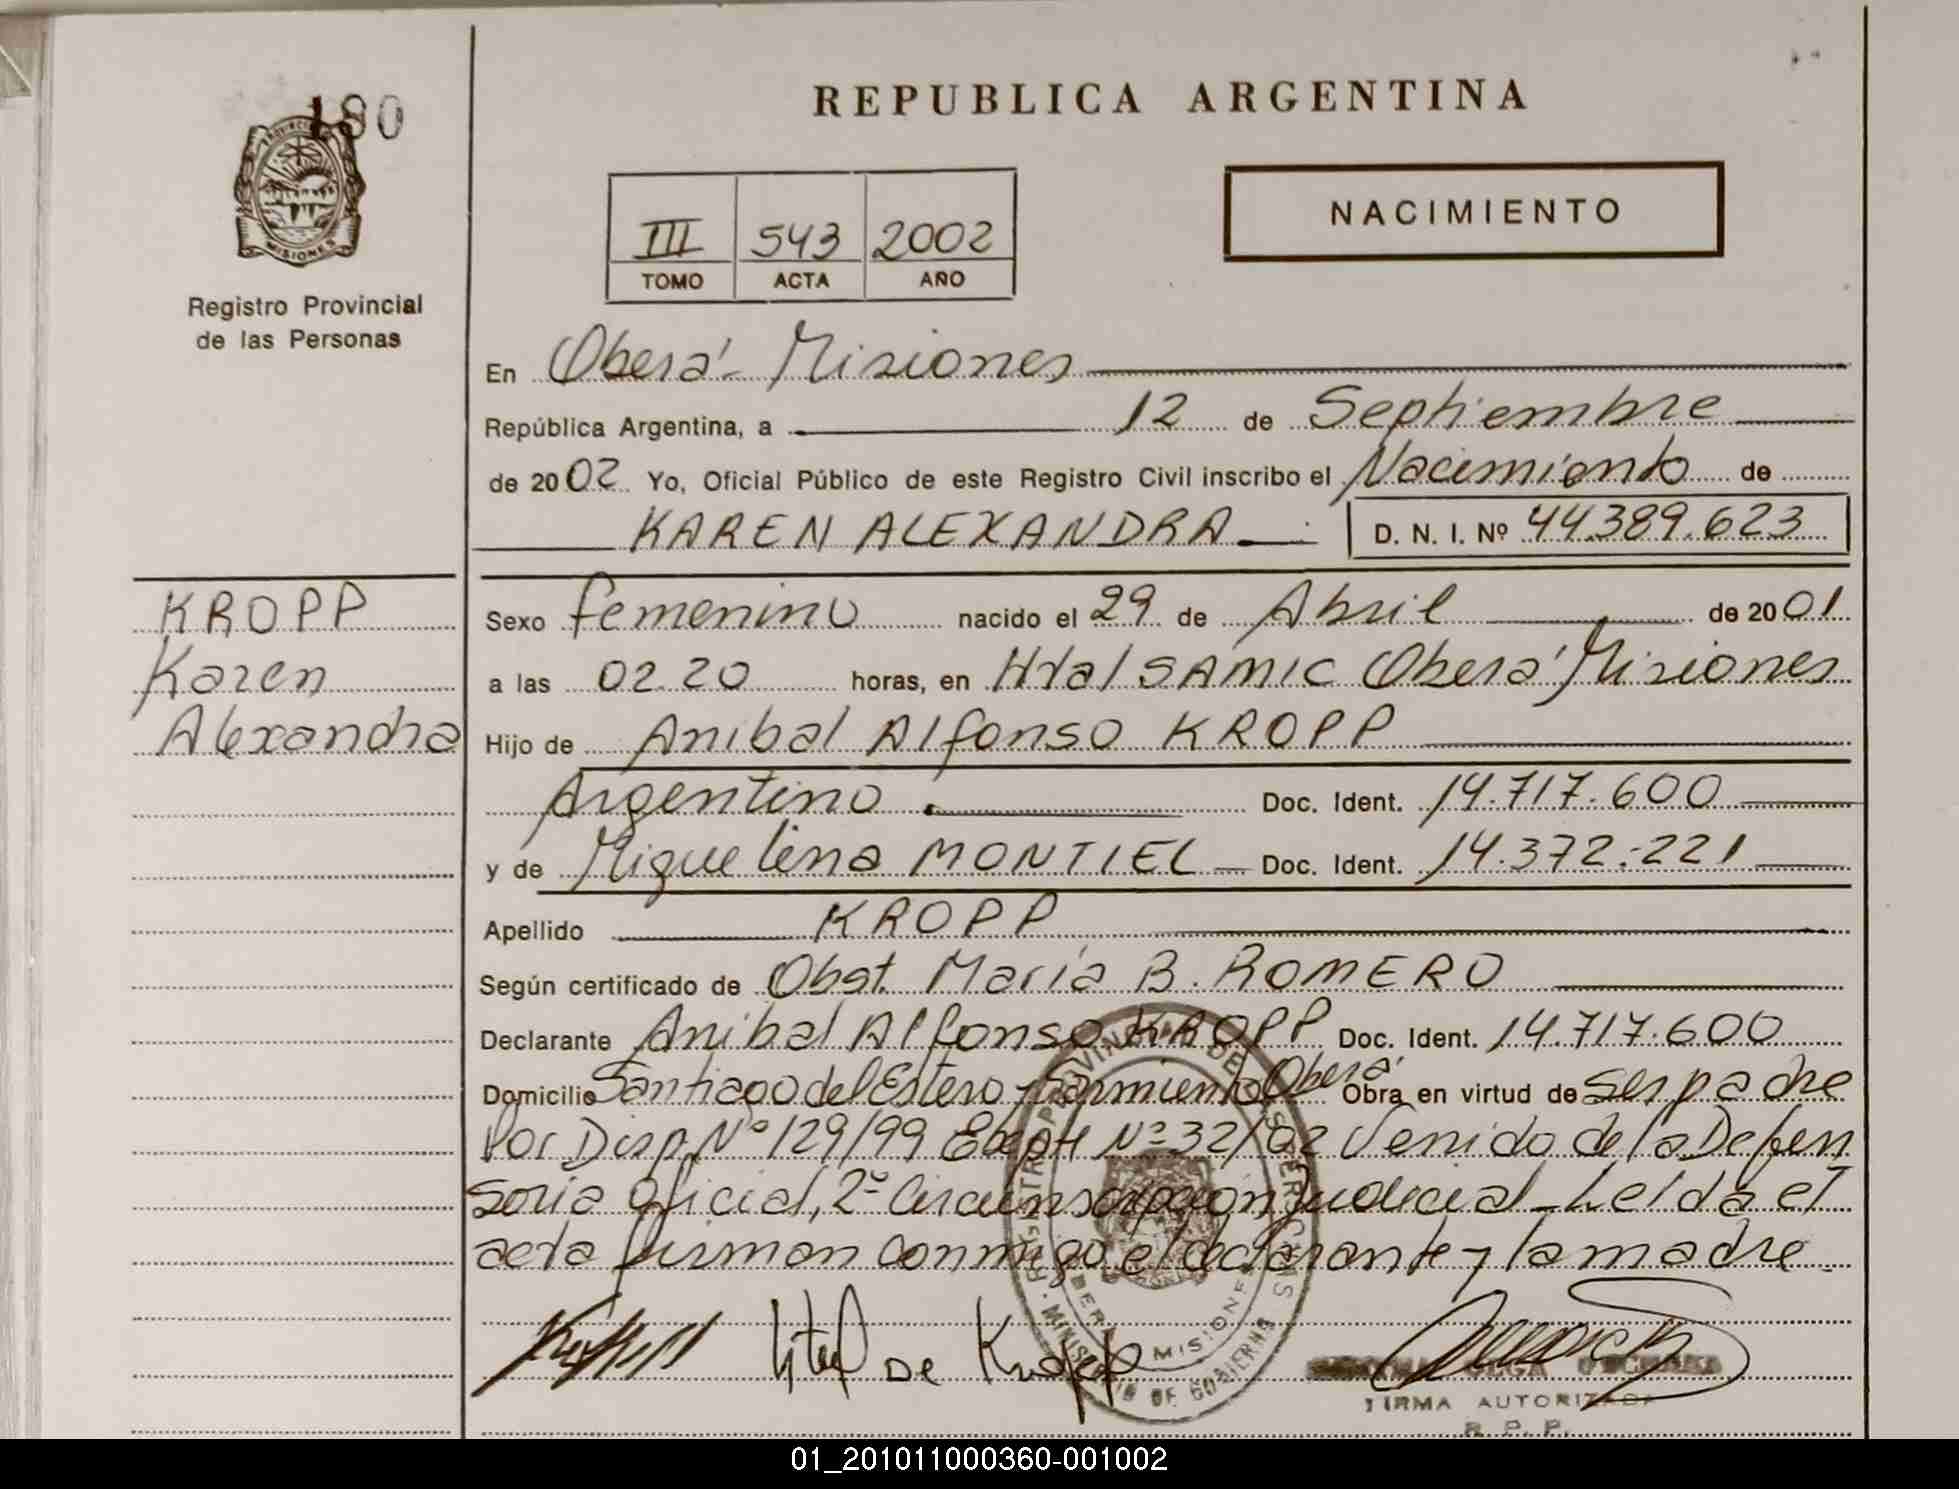 180
PROVINCIA
MISIONES
Registro Provincial
de las Personas
REPUBLICA ARGENTINA
III 543 2002
TOMO ACTA AÑO
NACIMIENTO
En Oberá - Misiones
República Argentina, a 12 de Septiembre
de 2002 Yo, Oficial Público de este Registro Civil inscribo el Nacimiento de
KAREN ALEXANDRA D. N. I. Nº 44.389.623
KROPP
Karen
Alexandra
Sexo femenino nacido el 29 de Abril de 2001
a las 02.20 horas, en Htal SAMIC Oberá Misiones
Hijo de Anibal Alfonso KROPP
Argentino. Doc. Ident. 14.717.600
y de Miguelina MONTIEL Doc. Ident. 14.372.221
Apellido KROPP
Según certificado de Obst. María B. ROMERO
Declarante Anibal Alfonso KROPP Doc. Ident. 14.717.600
Domicilio Santiago del Estero y Sarmiento Oberá Obra en virtud de ser padre
Por Disp. Nº 129/99 Expte Nº 32/02 Venido de la Defen
soria Oficial, 2º Circunscripción Judicial - Leída el
acta firman conmigo el declarante y la madre.
de
MISIONES
MINISTERIO DE GOBIERNO
OLGA
FIRMA AUTORIZADA
R. P. P.
01_201011000360-001002